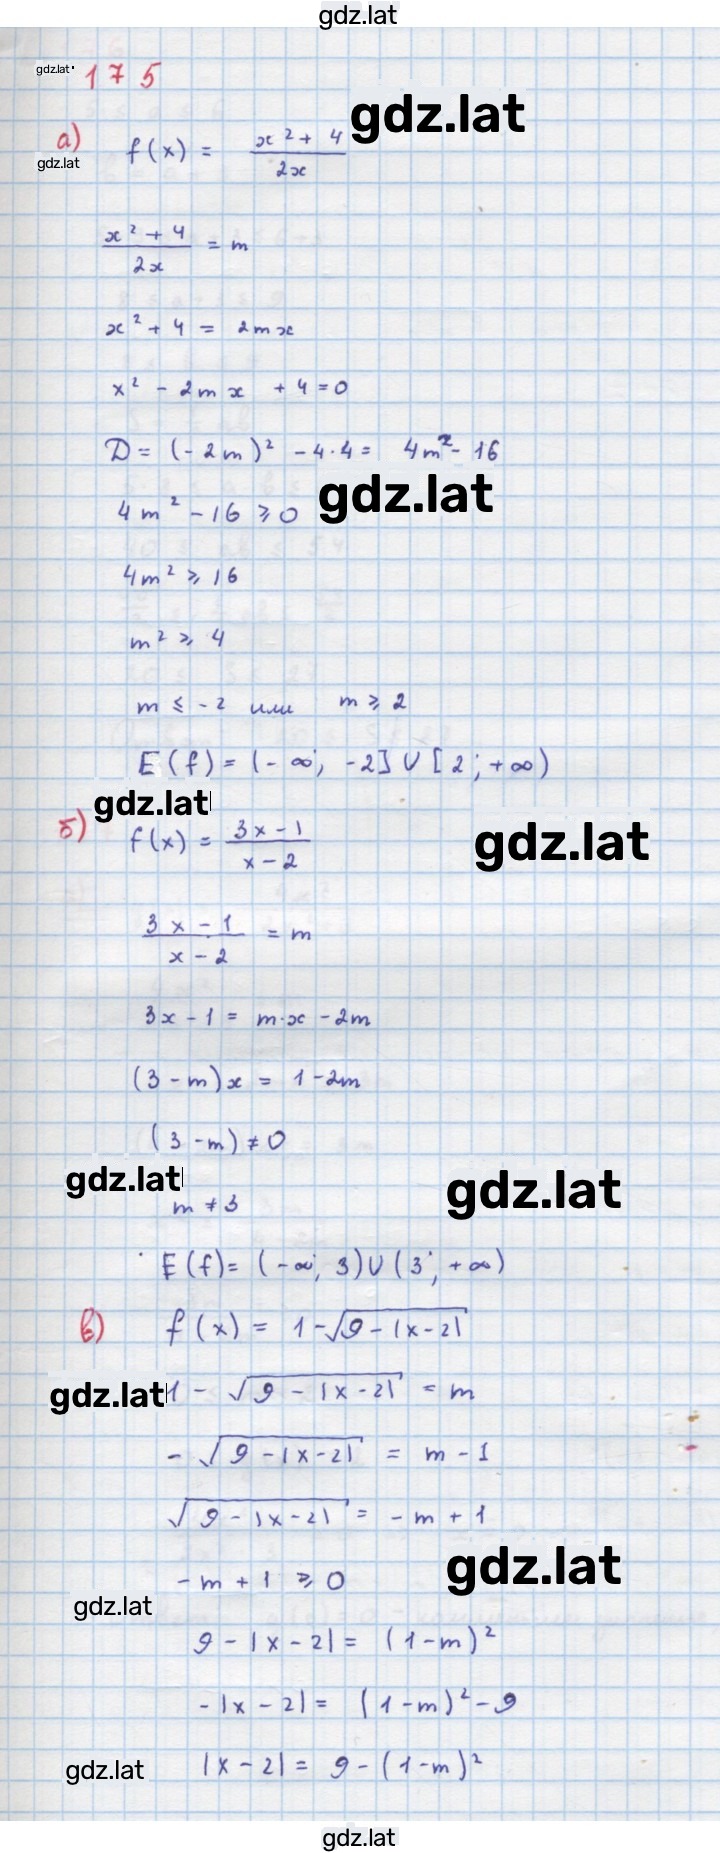 gdz.lat
gdz.lat 175
gdz.lat
а) f(x) = \frac{x² + 4}{2x}
gdz.lat
\frac{x² + 4}{2x} = m
x² + 4 = 2mx
x² - 2mx + 4 = 0
D = (-2m)² - 4·4 = 4m² - 16
gdz.lat
4m² - 16 ⩾ 0
4m² ⩾ 16
m² ⩾ 4
m ⩽ -2 или m ⩾ 2
E(f) = (-∞; -2] ∪ [2; +∞)
gdz.lat
б) f(x) = \frac{3x - 1}{x - 2}
gdz.lat
\frac{3x - 1}{x - 2} = m
3x - 1 = m·x - 2m
(3 - m)x = 1 - 2m
(3 - m) ≠ 0
gdz.lat
gdz.lat
m ≠ 3
E(f) = (-∞; 3) ∪ (3; +∞)
в) f(x) = 1 - √(9 - |x - 2|)
gdz.lat
1 - √(9 - |x - 2|) = m
- √(9 - |x - 2|) = m - 1
√(9 - |x - 2|) = -m + 1
gdz.lat
-m + 1 ⩾ 0
gdz.lat
9 - |x - 2| = (1 - m)²
-|x - 2| = (1 - m)² - 9
gdz.lat
|x - 2| = 9 - (1 - m)²
gdz.lat